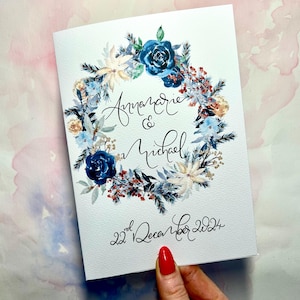 Annamarie
&
Michael
22nd December 2024